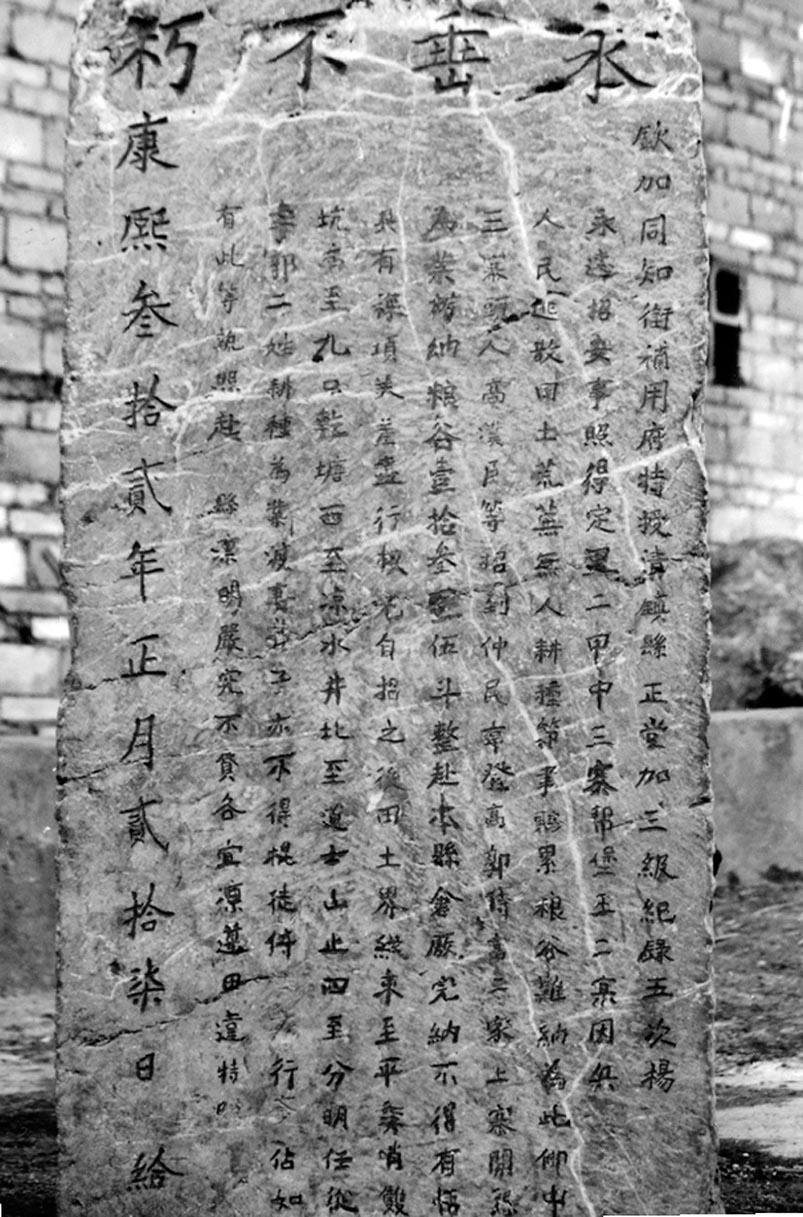 永垂不朽
欽加同知銜補用府特授清鎮縣正堂加三級紀錄五次楊
永遠招安事照得定里二甲中三寨幇堡王二寨因兵
人民逃散田土荒蕪無人耕種第事賠累粮谷難納為此仰中
三寨頭人高漢臣等招到仲民韋登高郭侍高三家上寨開
為業納粮谷壹拾叁石伍斗整赴本縣倉厫完納不得有悟
具有雜項夫差盡行概免自招之後田土界緃東至平寨哨
坑南至九只乾塘西至凉水井北至道士山止四至分明任從
韋郭二姓耕種為業後喜子亦不得棍徒行佔如
有此等執照赴 縣凛明嚴究不貸各宜凛遵毋違特
康熙叁拾貳年正月貳拾柒日 給